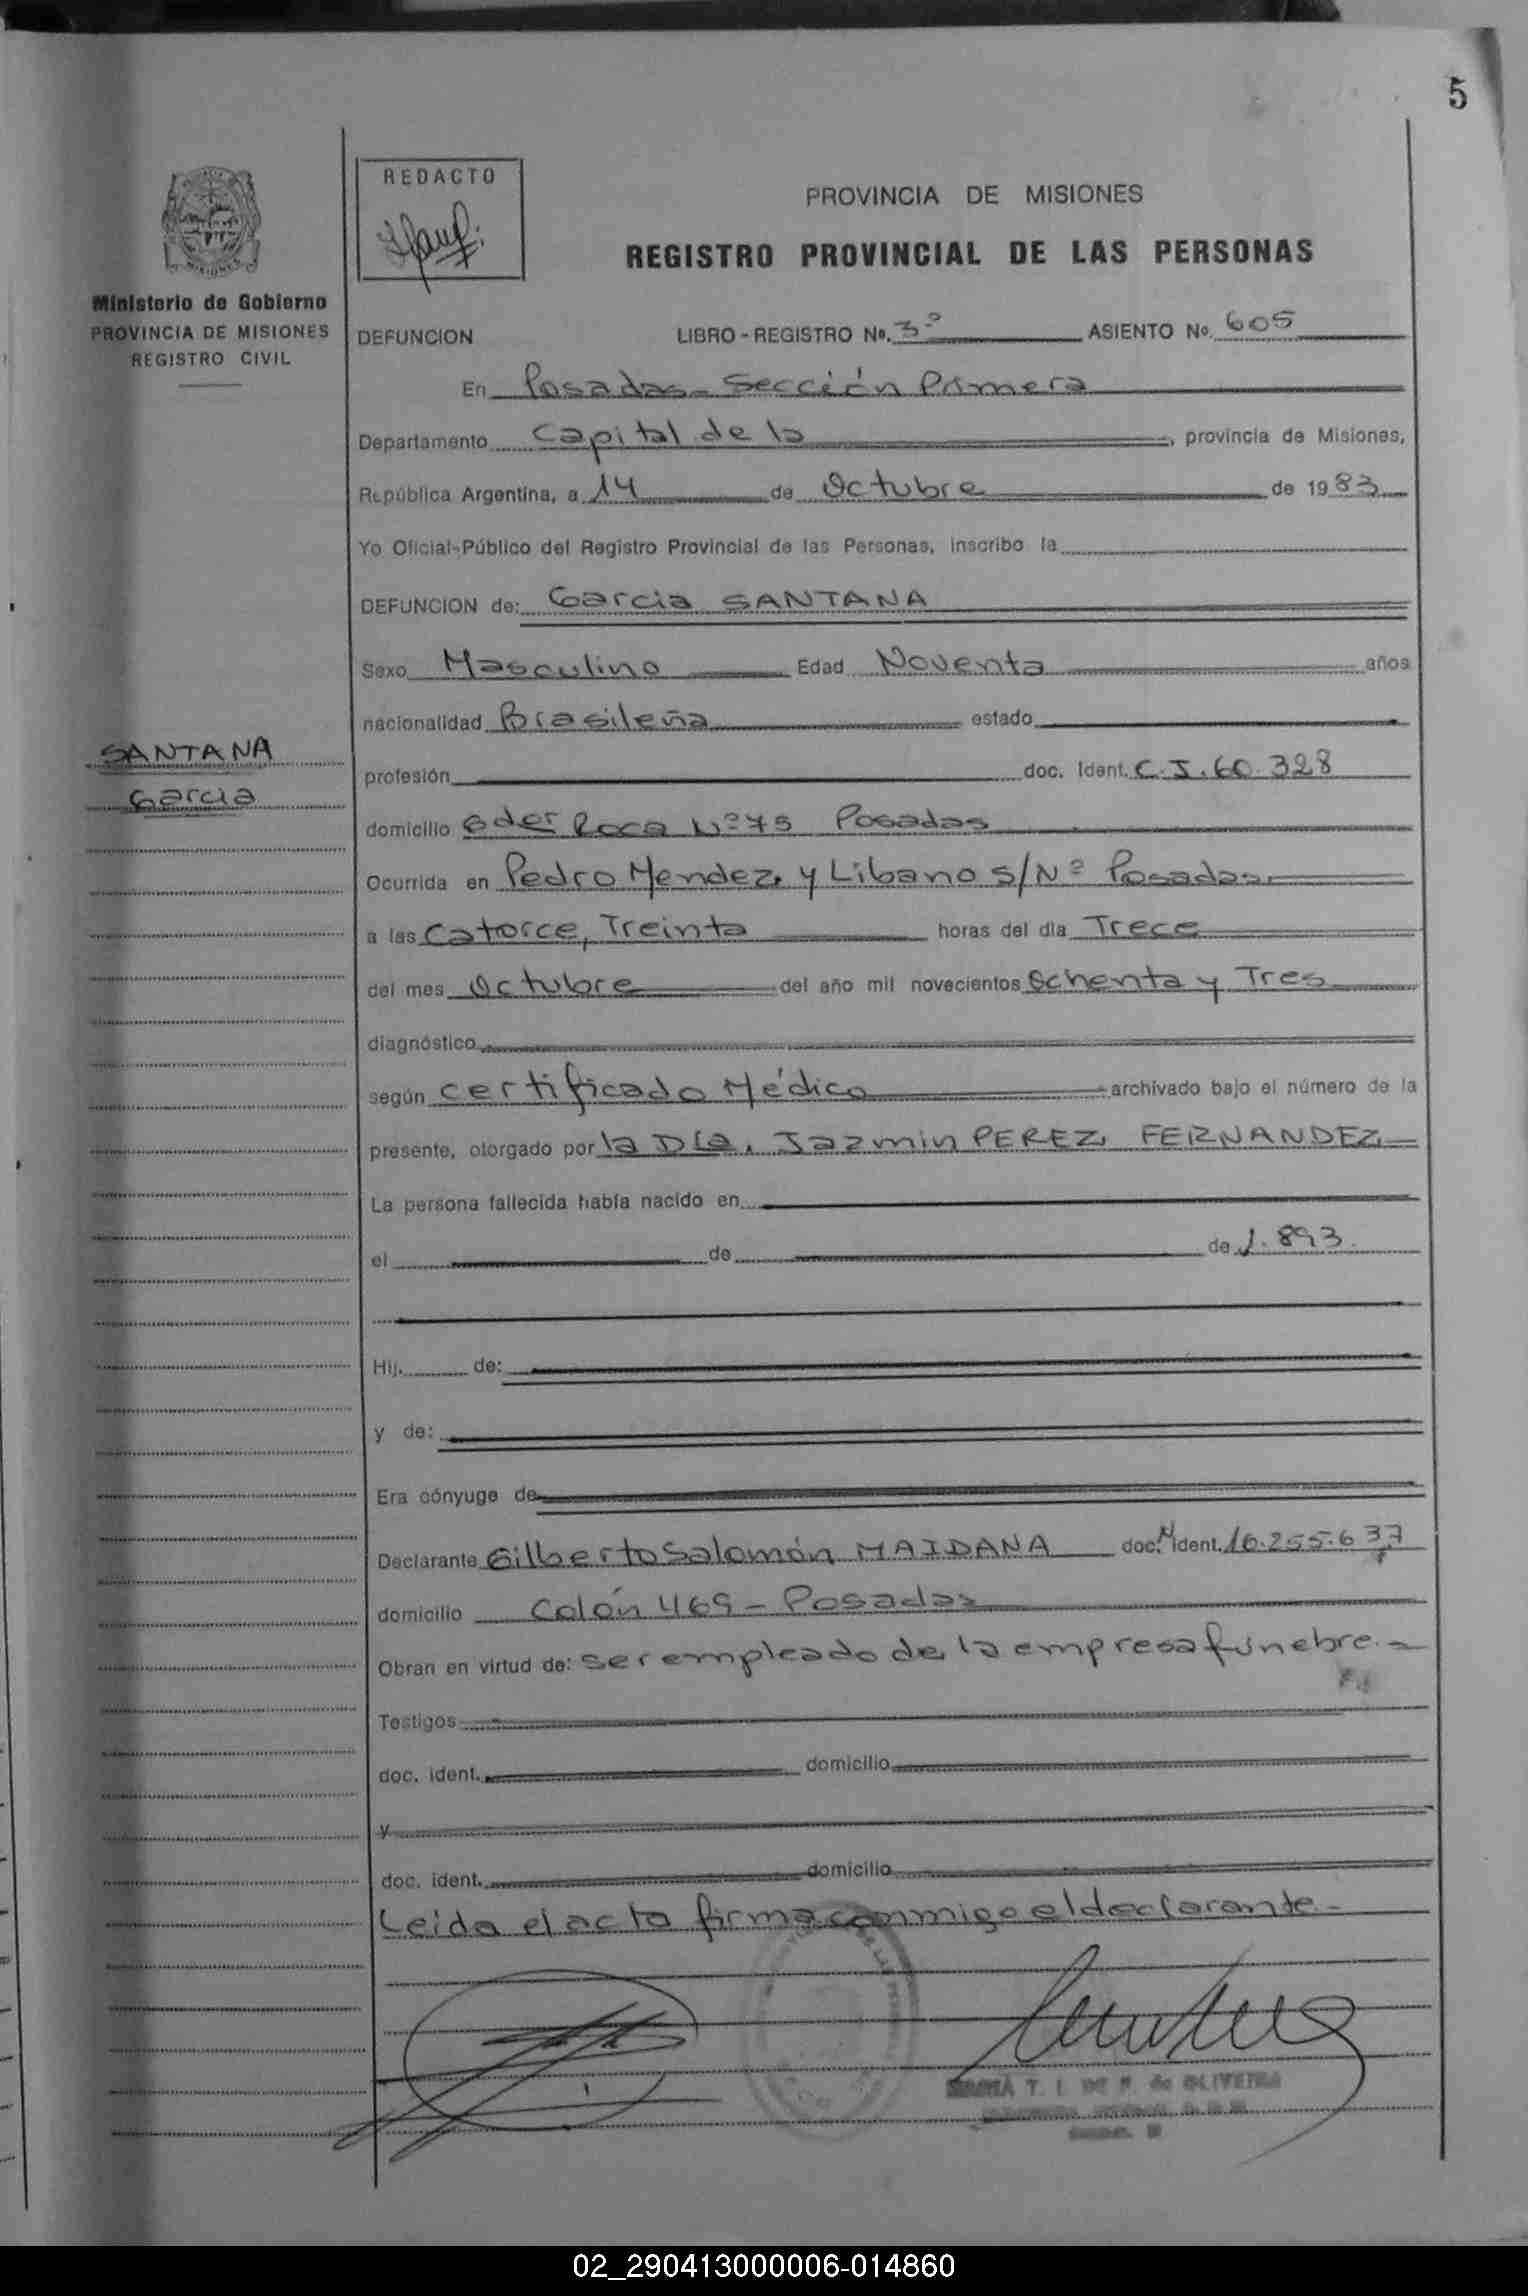 5
REDACTO
PROVINCIA DE MISIONES
REGISTRO PROVINCIAL DE LAS PERSONAS
Ministerio de Gobierno
PROVINCIA DE MISIONES
REGISTRO CIVIL
DEFUNCION LIBRO - REGISTRO No. 3º ASIENTO No. 605
En Posadas - Sección Primera
Departamento Capital de la, provincia de Misiones,
República Argentina, a 14 de Octubre de 1983
Yo Oficial-Público del Registro Provincial de las Personas, inscribo la
DEFUNCION de: Garcia SANTANA
Sexo Masculino Edad Noventa años
nacionalidad Brasileña estado
SANTANA
Garcia
profesión doc. Ident. C.I. 60.328
domicilio Roca Nº 75 Posadas
Ocurrida en Pedro Mendez y Libano S/Nº Posadas.
a las Catorce, Treinta horas del día Trece
del mes Octubre del año mil novecientos Ochenta y Tres
diagnóstico
según Certificado Médico archivado bajo el número de la
presente, otorgado por la Dra. Jazmin PEREZ FERNANDEZ
La persona fallecida había nacido en
el de de 1.893.
Hij. de:
y de:
Era cónyuge de
Declarante Gilberto Salomón MAIDANA doc. N ident. 16.255.637
domicilio Colón 469 - Posadas
Obran en virtud de: ser empleado de la empresa fúnebre.-
Testigos
doc. ident. domicilio
y
doc. ident. domicilio
Leida el acta firma conmigo el declarante -
T. I. DE P. de OLIVEIRA
02_290413000006-014860